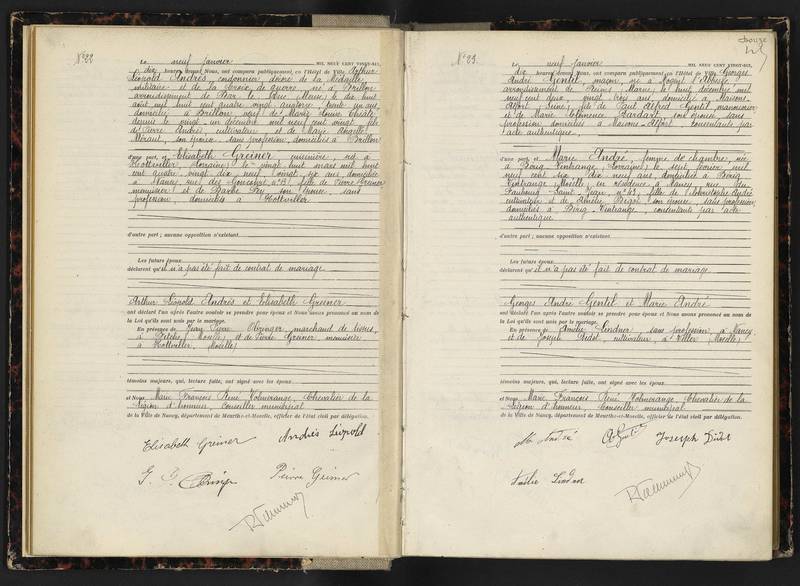 N° 22
Le neuf janvier MIL NEUF CENT VINGT-SIX,
à dix heures devant Nous, ont comparu publiquement en l'Hôtel de Ville, Arthur
Léopold Andrès, cordonnier, décoré de la Médaille
militaire et de la Croix de guerre, né à Brillon
arrondissement de Bar le Duc, Meuse, le dix huit
août mil huit cent quatre vingt quatorze, trente un ans
domicilié à Brillon, veuf de Marie Louise
depuis le vingt un décembre mil neuf cent vingt, fils
de Pierre Andrès, cultivateur et de Marie
Méraut, son épouse, sans profession, domiciliés à Brillon
d'une part, et Elisabeth Greiner, cuisinière, née à
Hottviller, Lorraine, le vingt huit mars mil huit
cent quatre vingt dix neuf, vingt six ans, domiciliée
à Nancy, rue des Goncourt n° 13, fille de Pierre Greiner
menuisier et de Barbe Fey, son épouse, sans
profession, domiciliés à Hottviller
d'autre part; aucune opposition n'existant.
Les futurs époux
déclarent qu'il n'a pas été fait de contrat de mariage.
Arthur Léopold Andrès et Elisabeth Greiner
ont déclaré l'un après l'autre vouloir se prendre pour époux et Nous avons prononcé au nom de
la Loi qu'ils sont unis par le mariage.
En présence de Jean Pierre Obringer, marchand de
à Bitche, Moselle, et de Pierre Greiner, menuisier
à Hottviller, Moselle
témoins majeurs, qui, lecture faite, ont signé avec les époux
et Nous, Marie François René Volmerange, Chevalier de la
Légion d'honneur, Conseiller municipal
de la Ville de Nancy, département de Meurthe-et-Moselle, officier de l'état civil par délégation.
Elisabeth Greiner Andrès Léopold
Pierre Greiner
N° 23.
Le neuf janvier MIL NEUF CENT VINGT-SIX,
dix heures devant Nous, ont comparu publiquement en l'Hôtel de Ville, Georges
André Gentil, maçon, né à
arrondissement de Reims, Marne, le huit décembre mil
neuf cent deux, vingt trois ans, domicilié à Maisons-
Alfort, Seine, fils de Paul Alfred Gentil, manouvrier
et de Marie Clémence Hardart, son épouse, sans
profession, domiciliés à Maisons-Alfort, consentants par
acte authentique.
d'une part, et Marie André, femme de chambre, née
à Bourg Vintrange, Lorraine, le sept février mil
neuf cent six, dix neuf ans, domiciliée à Bérig
Vintrange, Moselle, en résidence à Nancy, rue du
Faubourg Saint Jean n° 43, fille de André
cultivateur et de Amélie son épouse, sans profession,
domiciliés à Bérig Vintrange, consentants par acte
authentique
d'autre part; aucune opposition n'existant.
Les futurs époux
déclarent qu'il n'a pas été fait de contrat de mariage.
Georges André Gentil et Marie André
ont déclaré l'un après l'autre vouloir se prendre pour époux et Nous avons prononcé au nom de
la Loi qu'ils sont unis par le mariage.
En présence de Amélie Lindner, sans profession, à Nancy
et de Joseph Didot, cultivateur, à Viller (Moselle)
témoins majeurs, qui, lecture faite, ont signé avec les époux
et Nous, Marie François René Volmerange, Chevalier de la
Légion d'honneur, Conseiller municipal
de la Ville de Nancy, département de Meurthe-et-Moselle, officier de l'état civil par délégation.
André Joseph Didot
Lindner